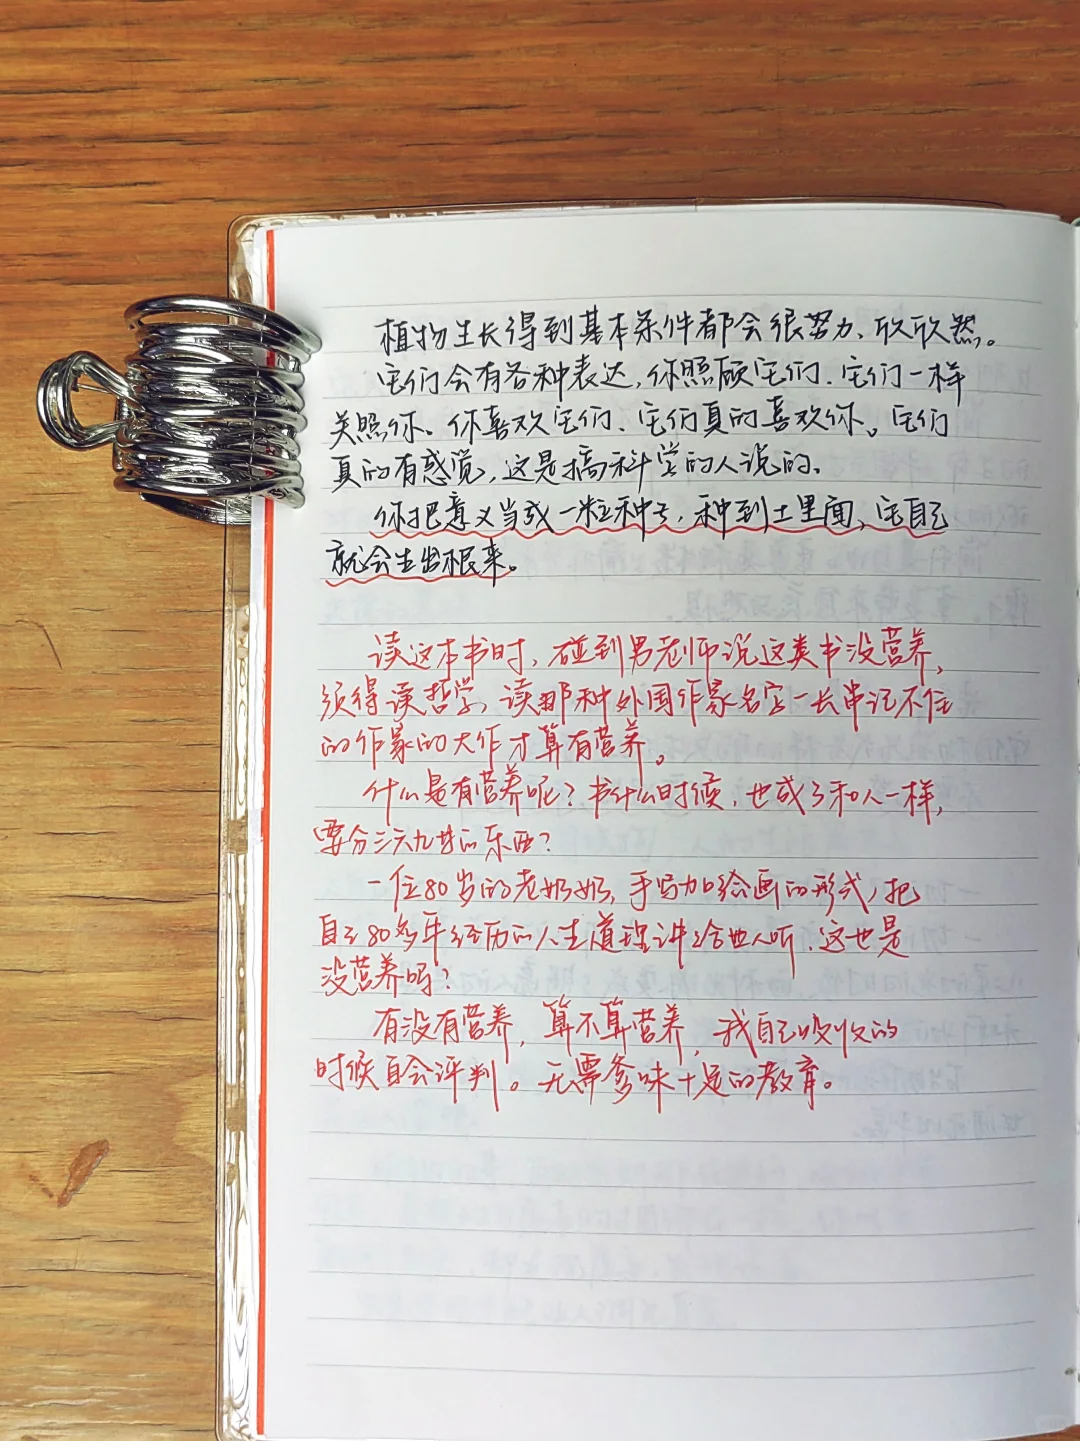 植物生长得到基本条件都会很努力、欣欣然。
它们会有各种表达，你照顾它们、它们一样
关照你。你喜欢它们、它们真的喜欢你。它们
真的有感觉，这是搞科学的人说的。
你把意义当成一粒种子，种到土里面，它自己
就会生出根来。
读这本书时，碰到男老师说这类书没营养，
须得读哲学，读那种外国作家名字一长串记不住
的作家的大作才算有营养。
什么是有营养呢？书什么时候，也成了和人一样，
要分三六九等的东西？
一位80岁的老奶奶，手写加绘画的形式，把
自己80多年经历的人生道理讲给世人听，这也是
没营养吗？
有没有营养，算不算营养，我自己吸收的
时候自会评判。无需爹味十足的教育。